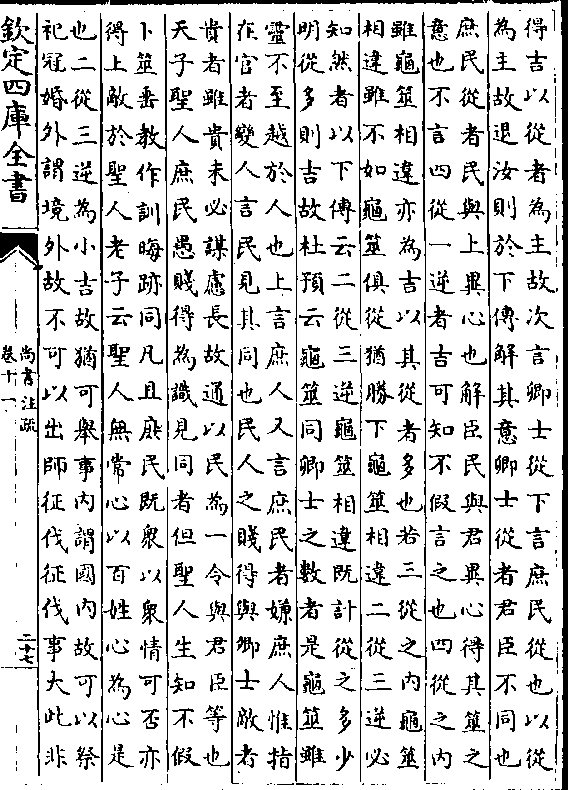 得吉以從者為主故次言卿士從下言庶民從也以從
為主故退汝則於下傳解其意卿士從者君臣不同也
庶民從者民與上異心也解臣民與君異心得其筮之
意也不言四從一逆者吉可知不假言之也四從之内
雖龜筮相違亦為吉以其從者多也若三從之内龜筮
相違雖不如龜筮俱從猶勝下龜筮相違二從三逆必
知然者以下傳云二從三逆龜筮相違既計從之多少
明從多則吉故杜預云龜筮同卿士之數者是龜筮雖
靈不至越於人也上言庶人又言庶民者嫌庶人惟指
在官者變人言民見其同也民人之賤得與卿士敵者
貴者雖貴未必謀慮長故通以民為一令與君臣等也
天子聖人庶民愚賤得為識見同者但聖人生知不假
卜筮垂教作訓晦跡同凡且庶民既衆以衆情可否亦
得上敵於聖人老子云聖人無常心以百姓心為心是
也二從三逆為小吉故猶可舉事内謂國内故可以祭
祀冠婚外謂境外故不可以出師征伐征伐事大此非
欽定四庫全書
尚書注疏
卷十一
二十七